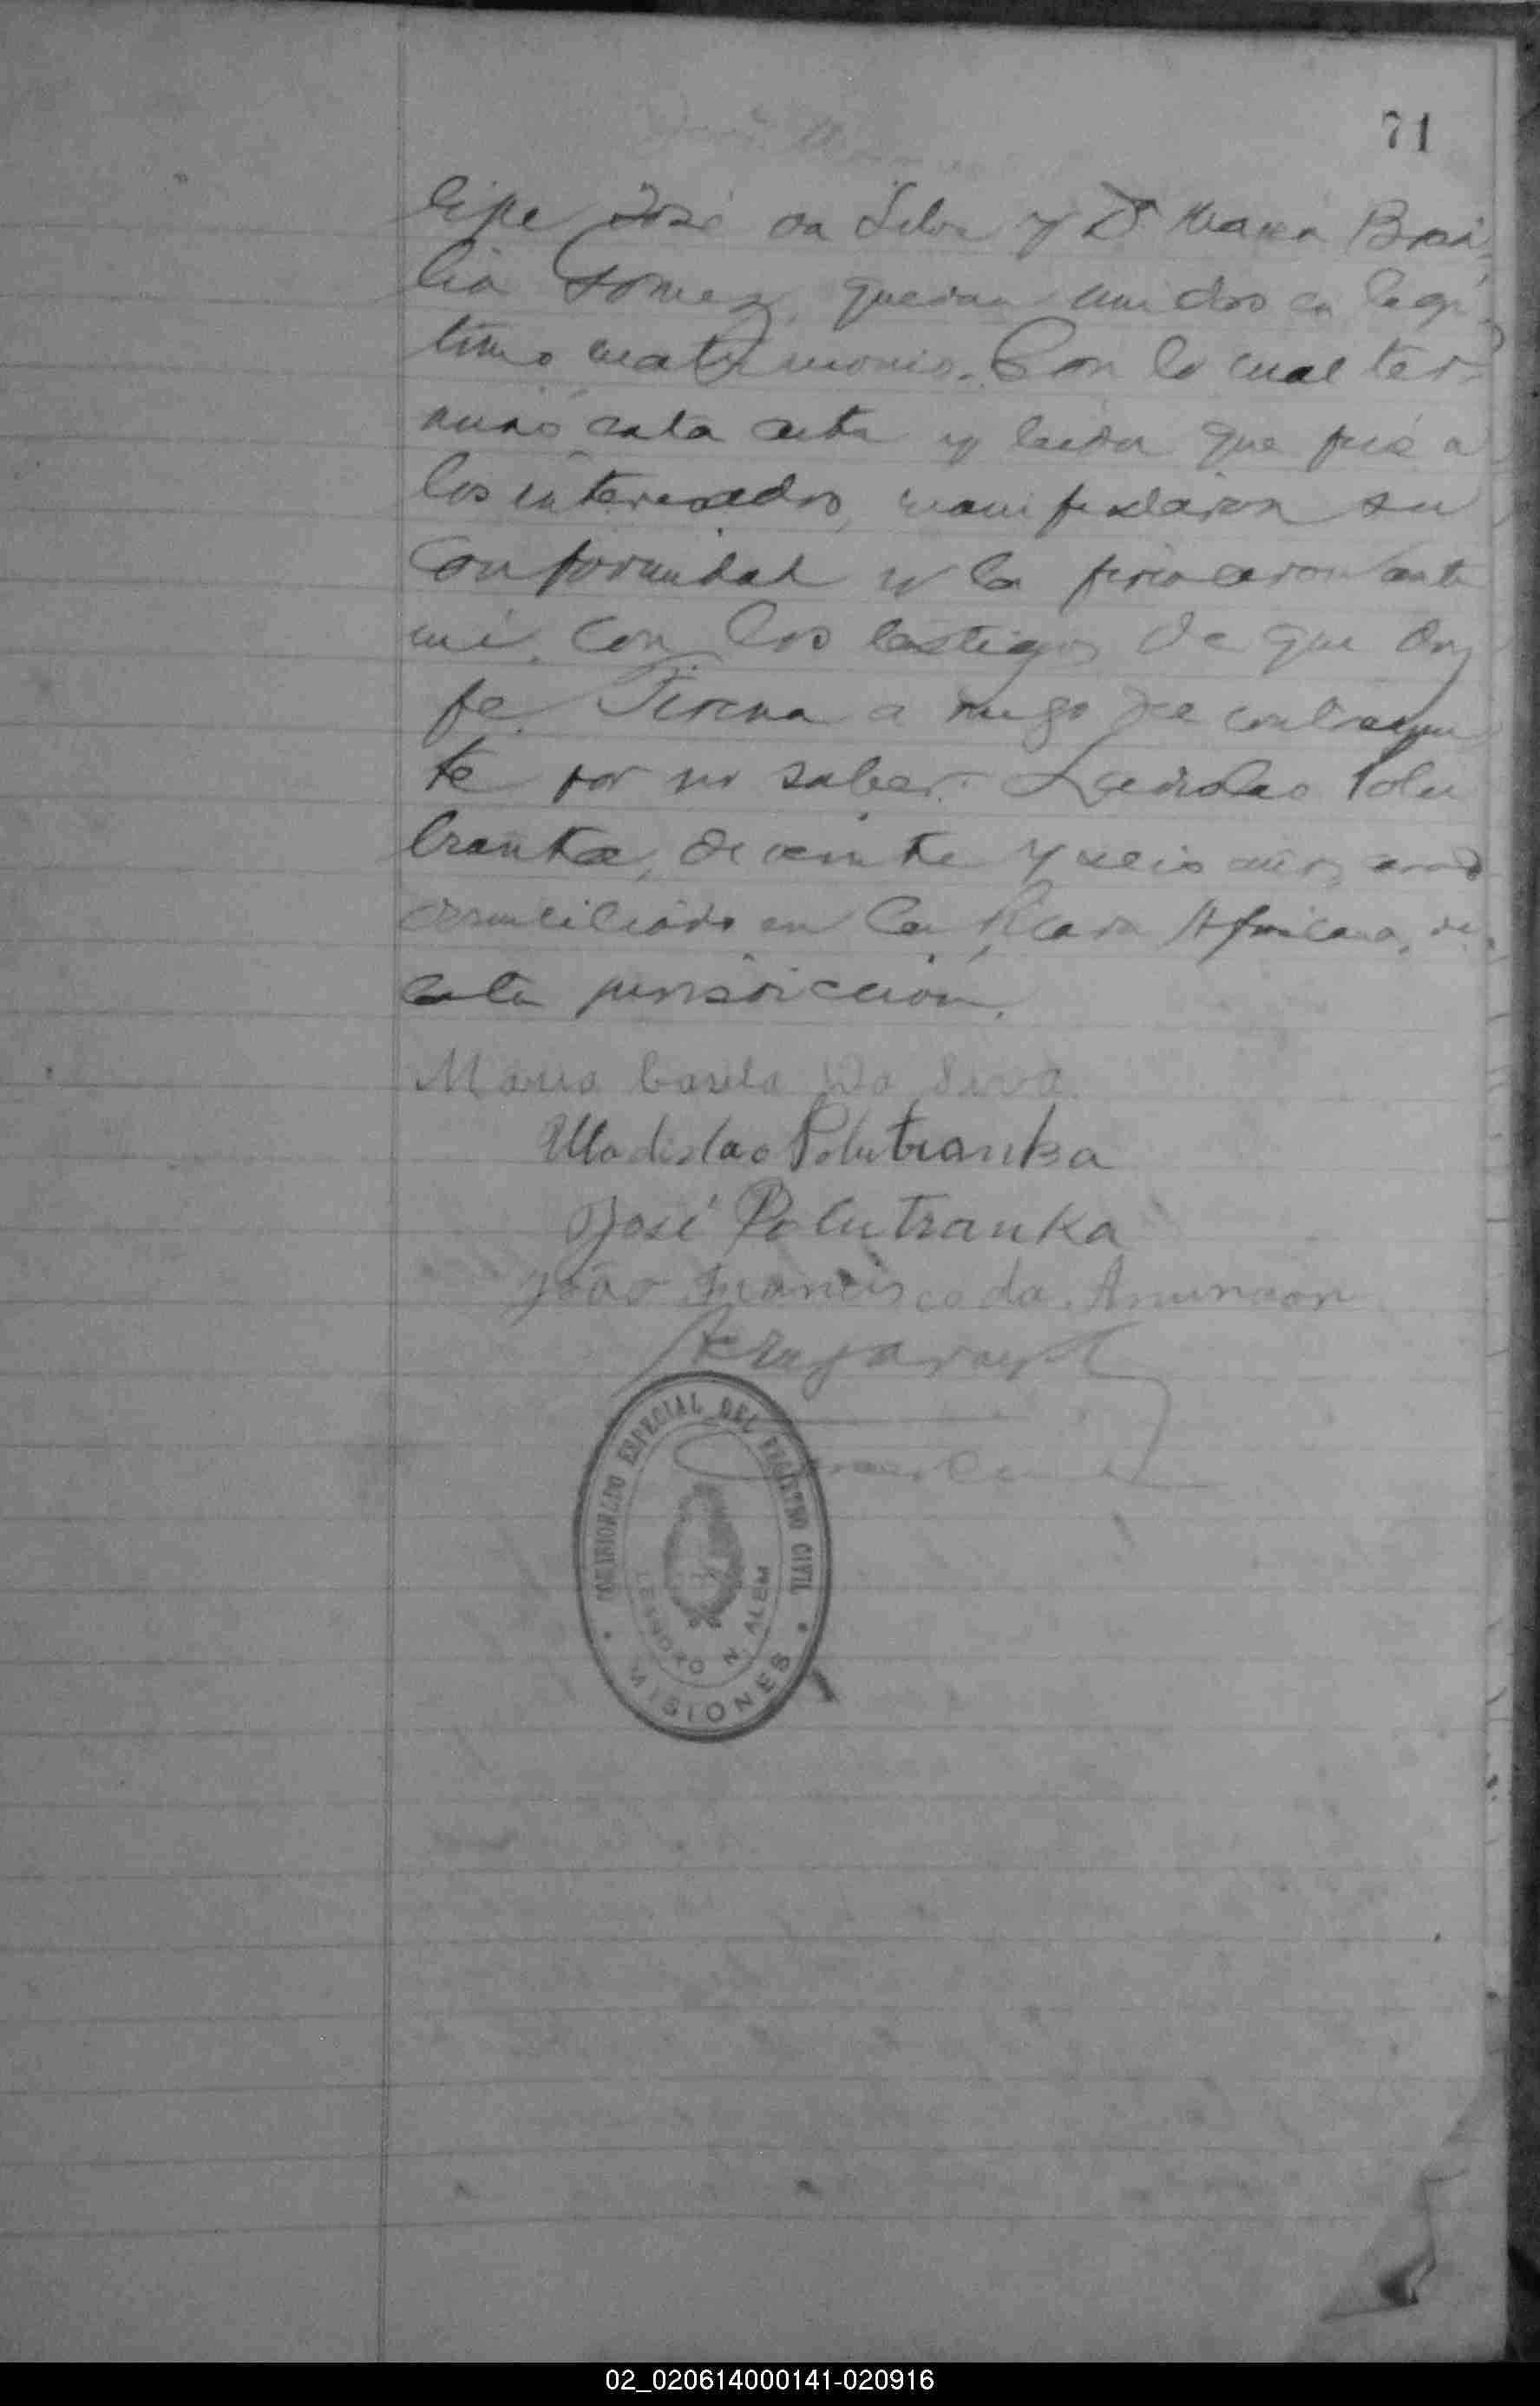 71
lipe José da Silva y Dª Maria Basi-
lia Gomez, quedan unidos en legi-
timo matrimonio. Con lo cual ter-
minó esta acta y leida que fué a
los interesados, manifestaron su
conformidad y la firmaron ante
mi, con los testigos de que doy
fe. Firma a ruego del contrayen
te por no saber. Ladislao Polu
tranka, de veinte y seis años,
domiciliado en la Picada Africana, de
esta jurisdicción.
Maria Basila da Silva
Uladislao Polutranka
José Polutranka
João Francisco da Anunson
COMISIONADO ESPECIAL DEL REGISTRO CIVIL
LEANDRO N. ALEM
MISIONES
02_020614000141-020916